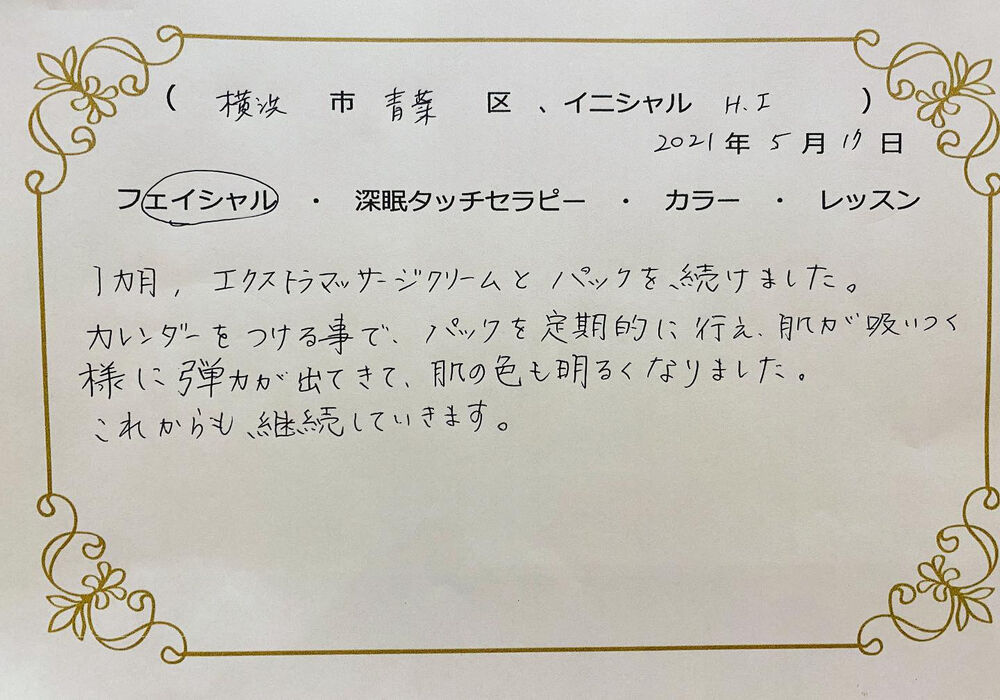 ( 横浜 市 青葉 区 、イニシャル H.I )
2021 年 5 月 17 日
フェイシャル ・ 深眠タッチセラピー ・ カラー ・ レッスン
1カ月, エクストラマッサージクリームと パックを続けました。
カレンダーをつける事で、パックを定期的に行え、肌が吸いつく
様に弾力が出てきて、肌の色も明るくなりました。
これからも継続していきます。